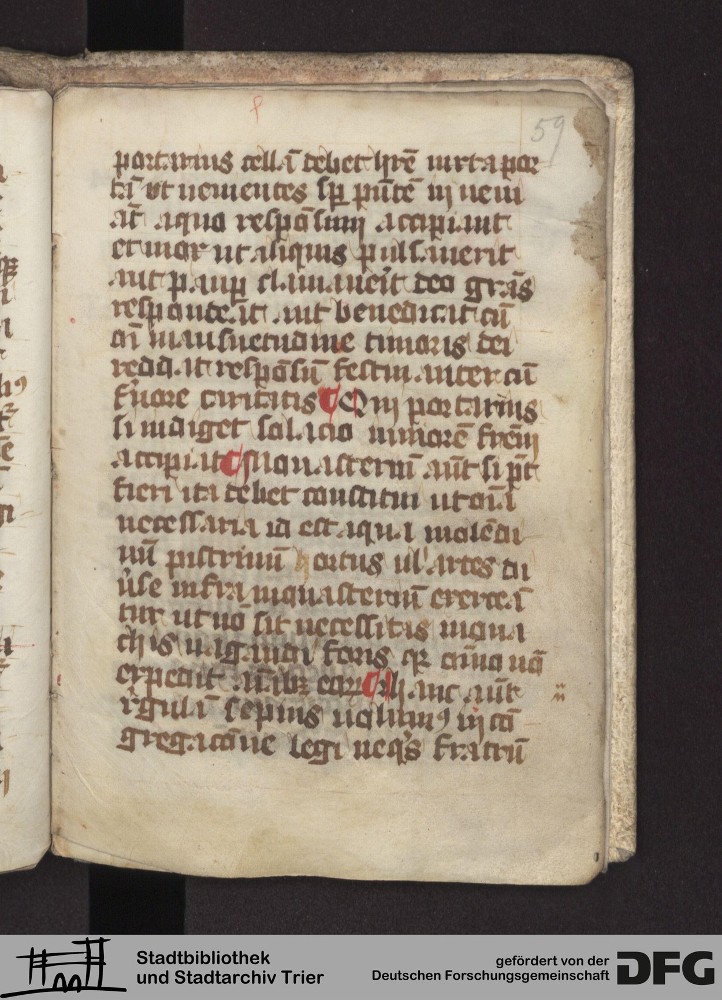 59
portarius cellā debet hr̄e iuxta por
tā ut uenientes sp̄ p̄ntē in ueni
āt a quo respōsum accipiant
et mox ut aliquis pulsauerit
aut paup̄ clamauerit deo grās
respondeat aut benedicat cū
oī mansuetudine timoris dei
reddat respōsū festinanter cū
feruore caritatis Qui portarius
si indiget solacio iuniorē frēm
accipiat Monasteriū aūt si p̄t
fieri ita debet constitui ut oīa
necessaria id est aqua molēdi
nū pistrinū hortus ul' artes di
u̓se infra monasteriū exerceā
tur ut nō sit necessitas mona
chis uagandi foris qr oīno nō
expedit aīabꝫ eorꝝ hanc aūt
rēgulā sepius uolumꝰ in cō
gregacōne legi ne qͥs fratrū
Stadtbibliothek
und Stadtarchiv Trier
gefördert von der
Deutschen Forschungsgemeinschaft
DFG